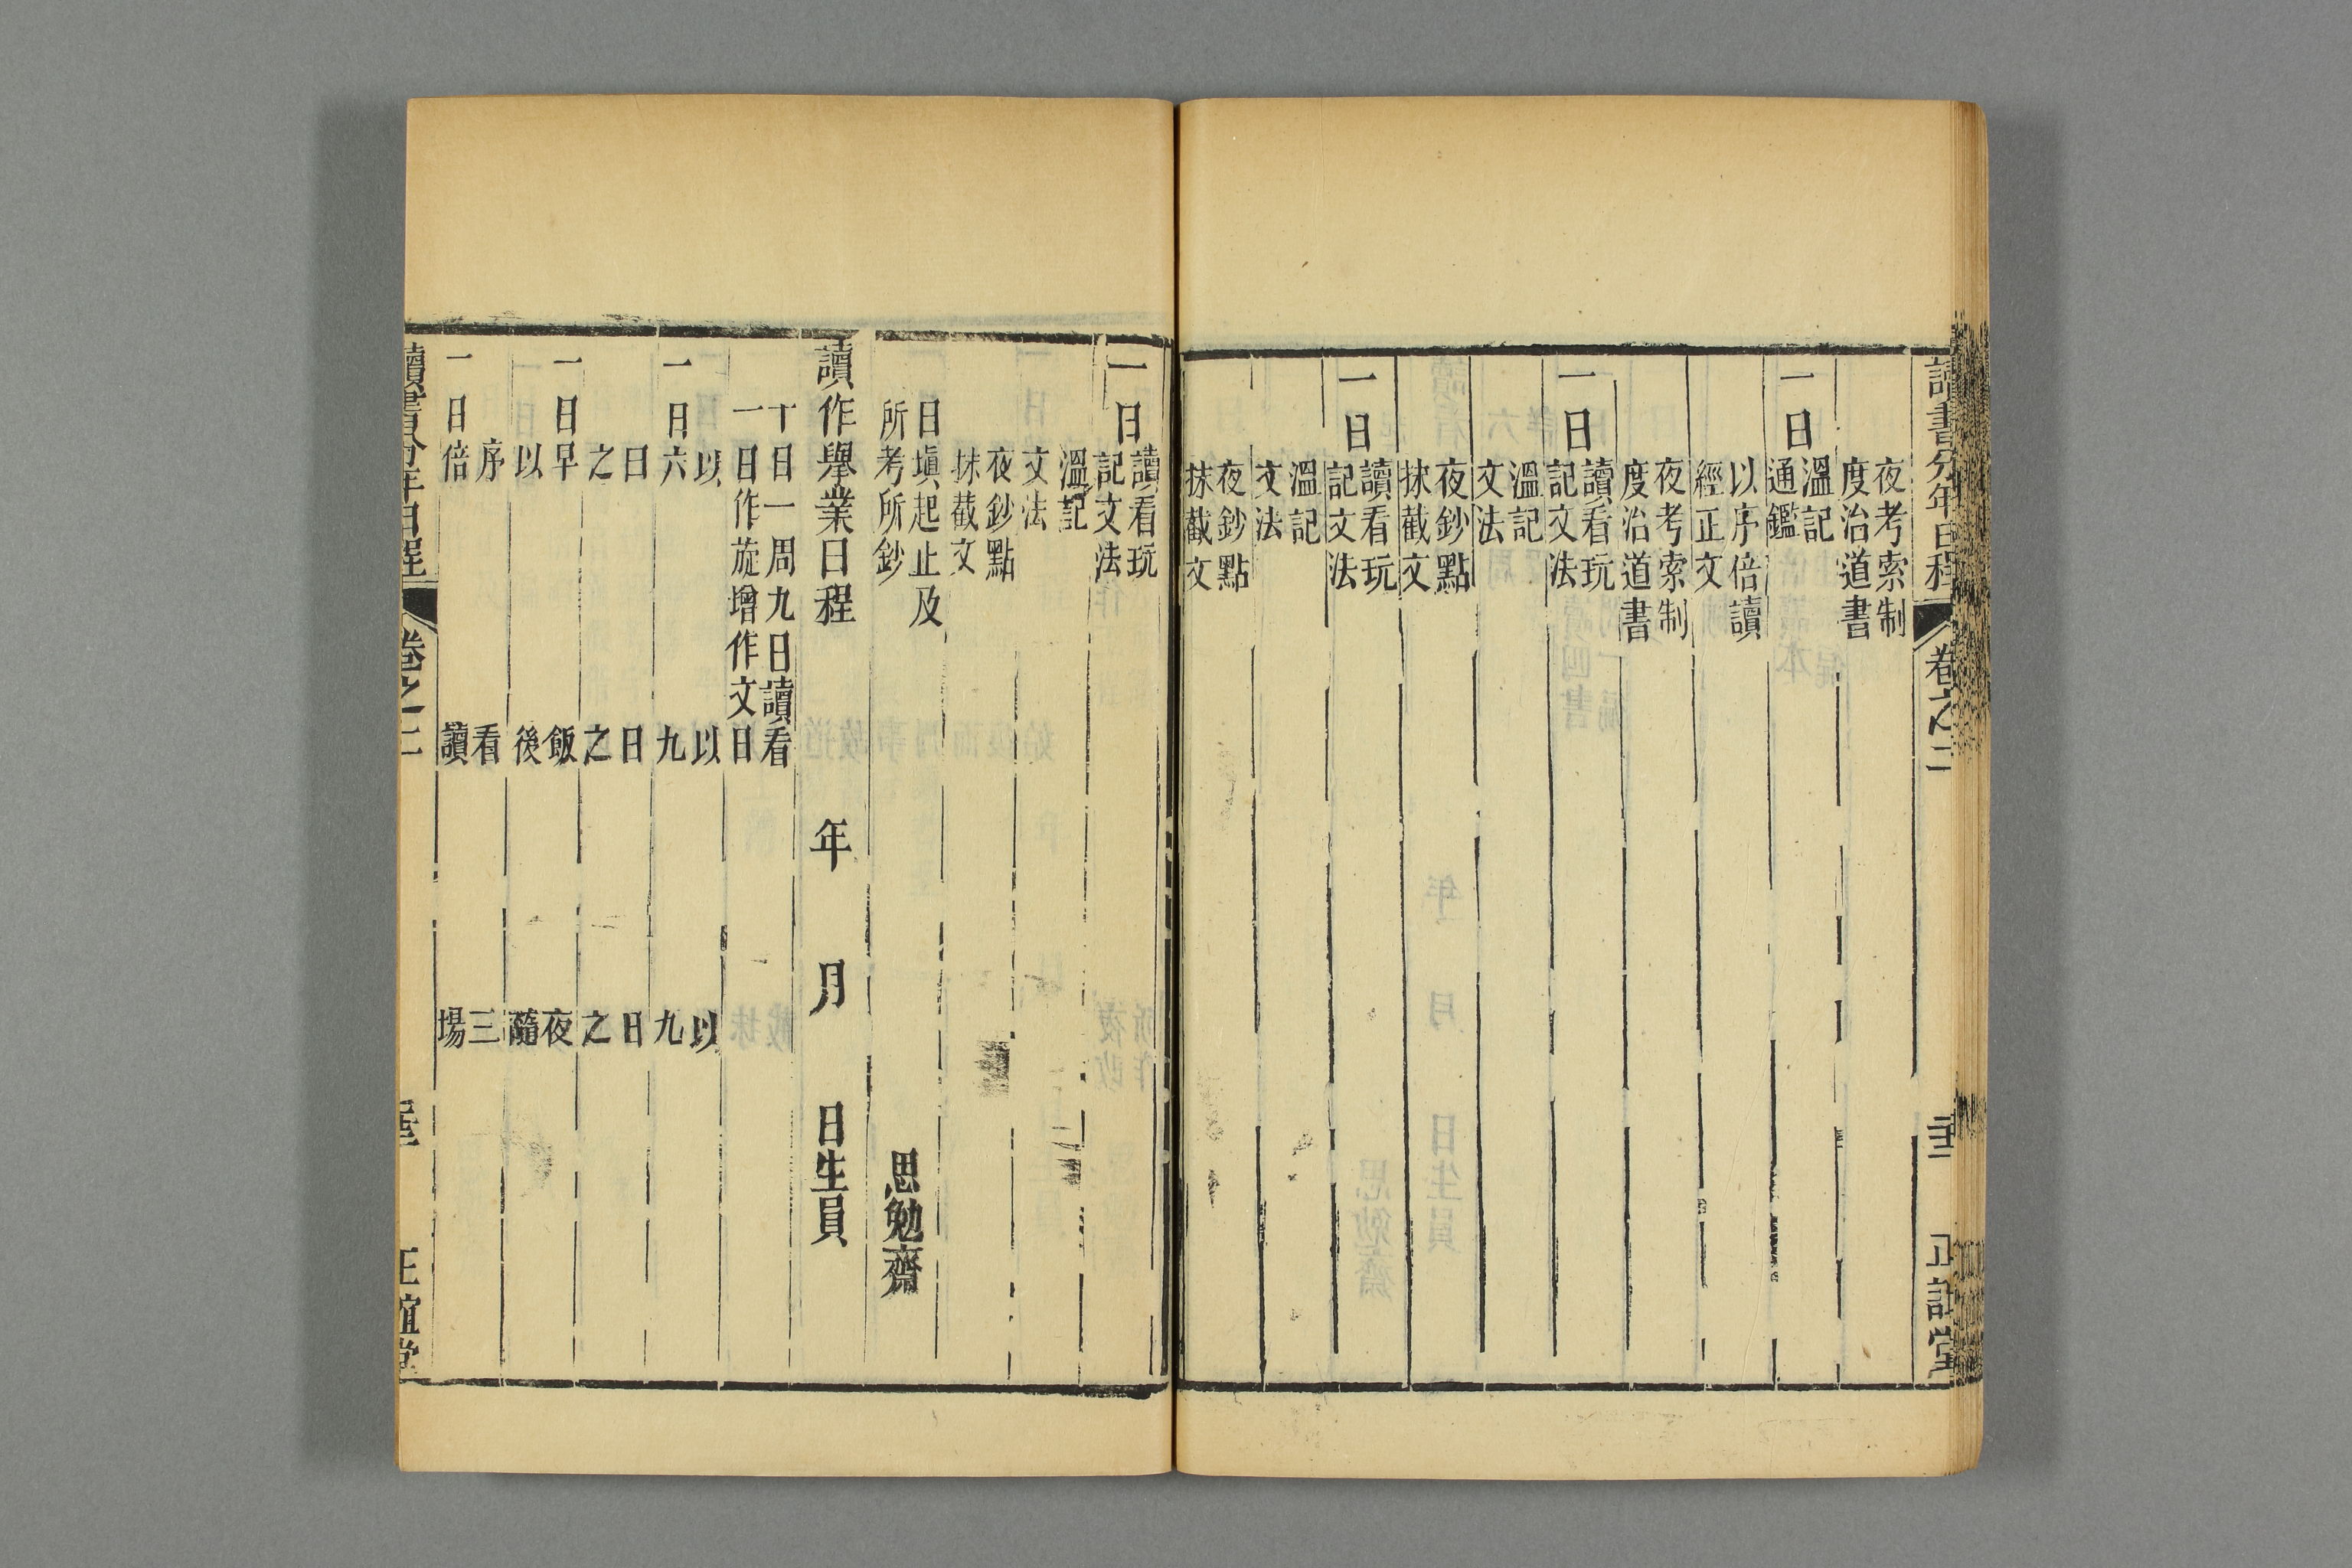 讀書分年日程 卷之二 正誼堂
夜考索制
度治道書
一日 溫記
通鑑
以序倍讀
經正文
夜考索制
度治道書
一日 讀看玩
記文法
溫記
文法
夜鈔點
抹截文
一日 讀看玩
記文法
溫記
文法
夜鈔點
抹截文
一日 讀看玩
記文法
溫記
文法
夜鈔點
抹截文
日塡起止及
所考所鈔 思勉齋
讀作舉業日程 年 月 日生員
十日一周九日讀看
一日作旋增作文日
以 以 以
一日六 九 九
日 日 日
之 之 之
一日早 飯 夜
以 後 隨
序 看 三
一日倍 讀 場
讀書分年日程 卷之二 正誼堂